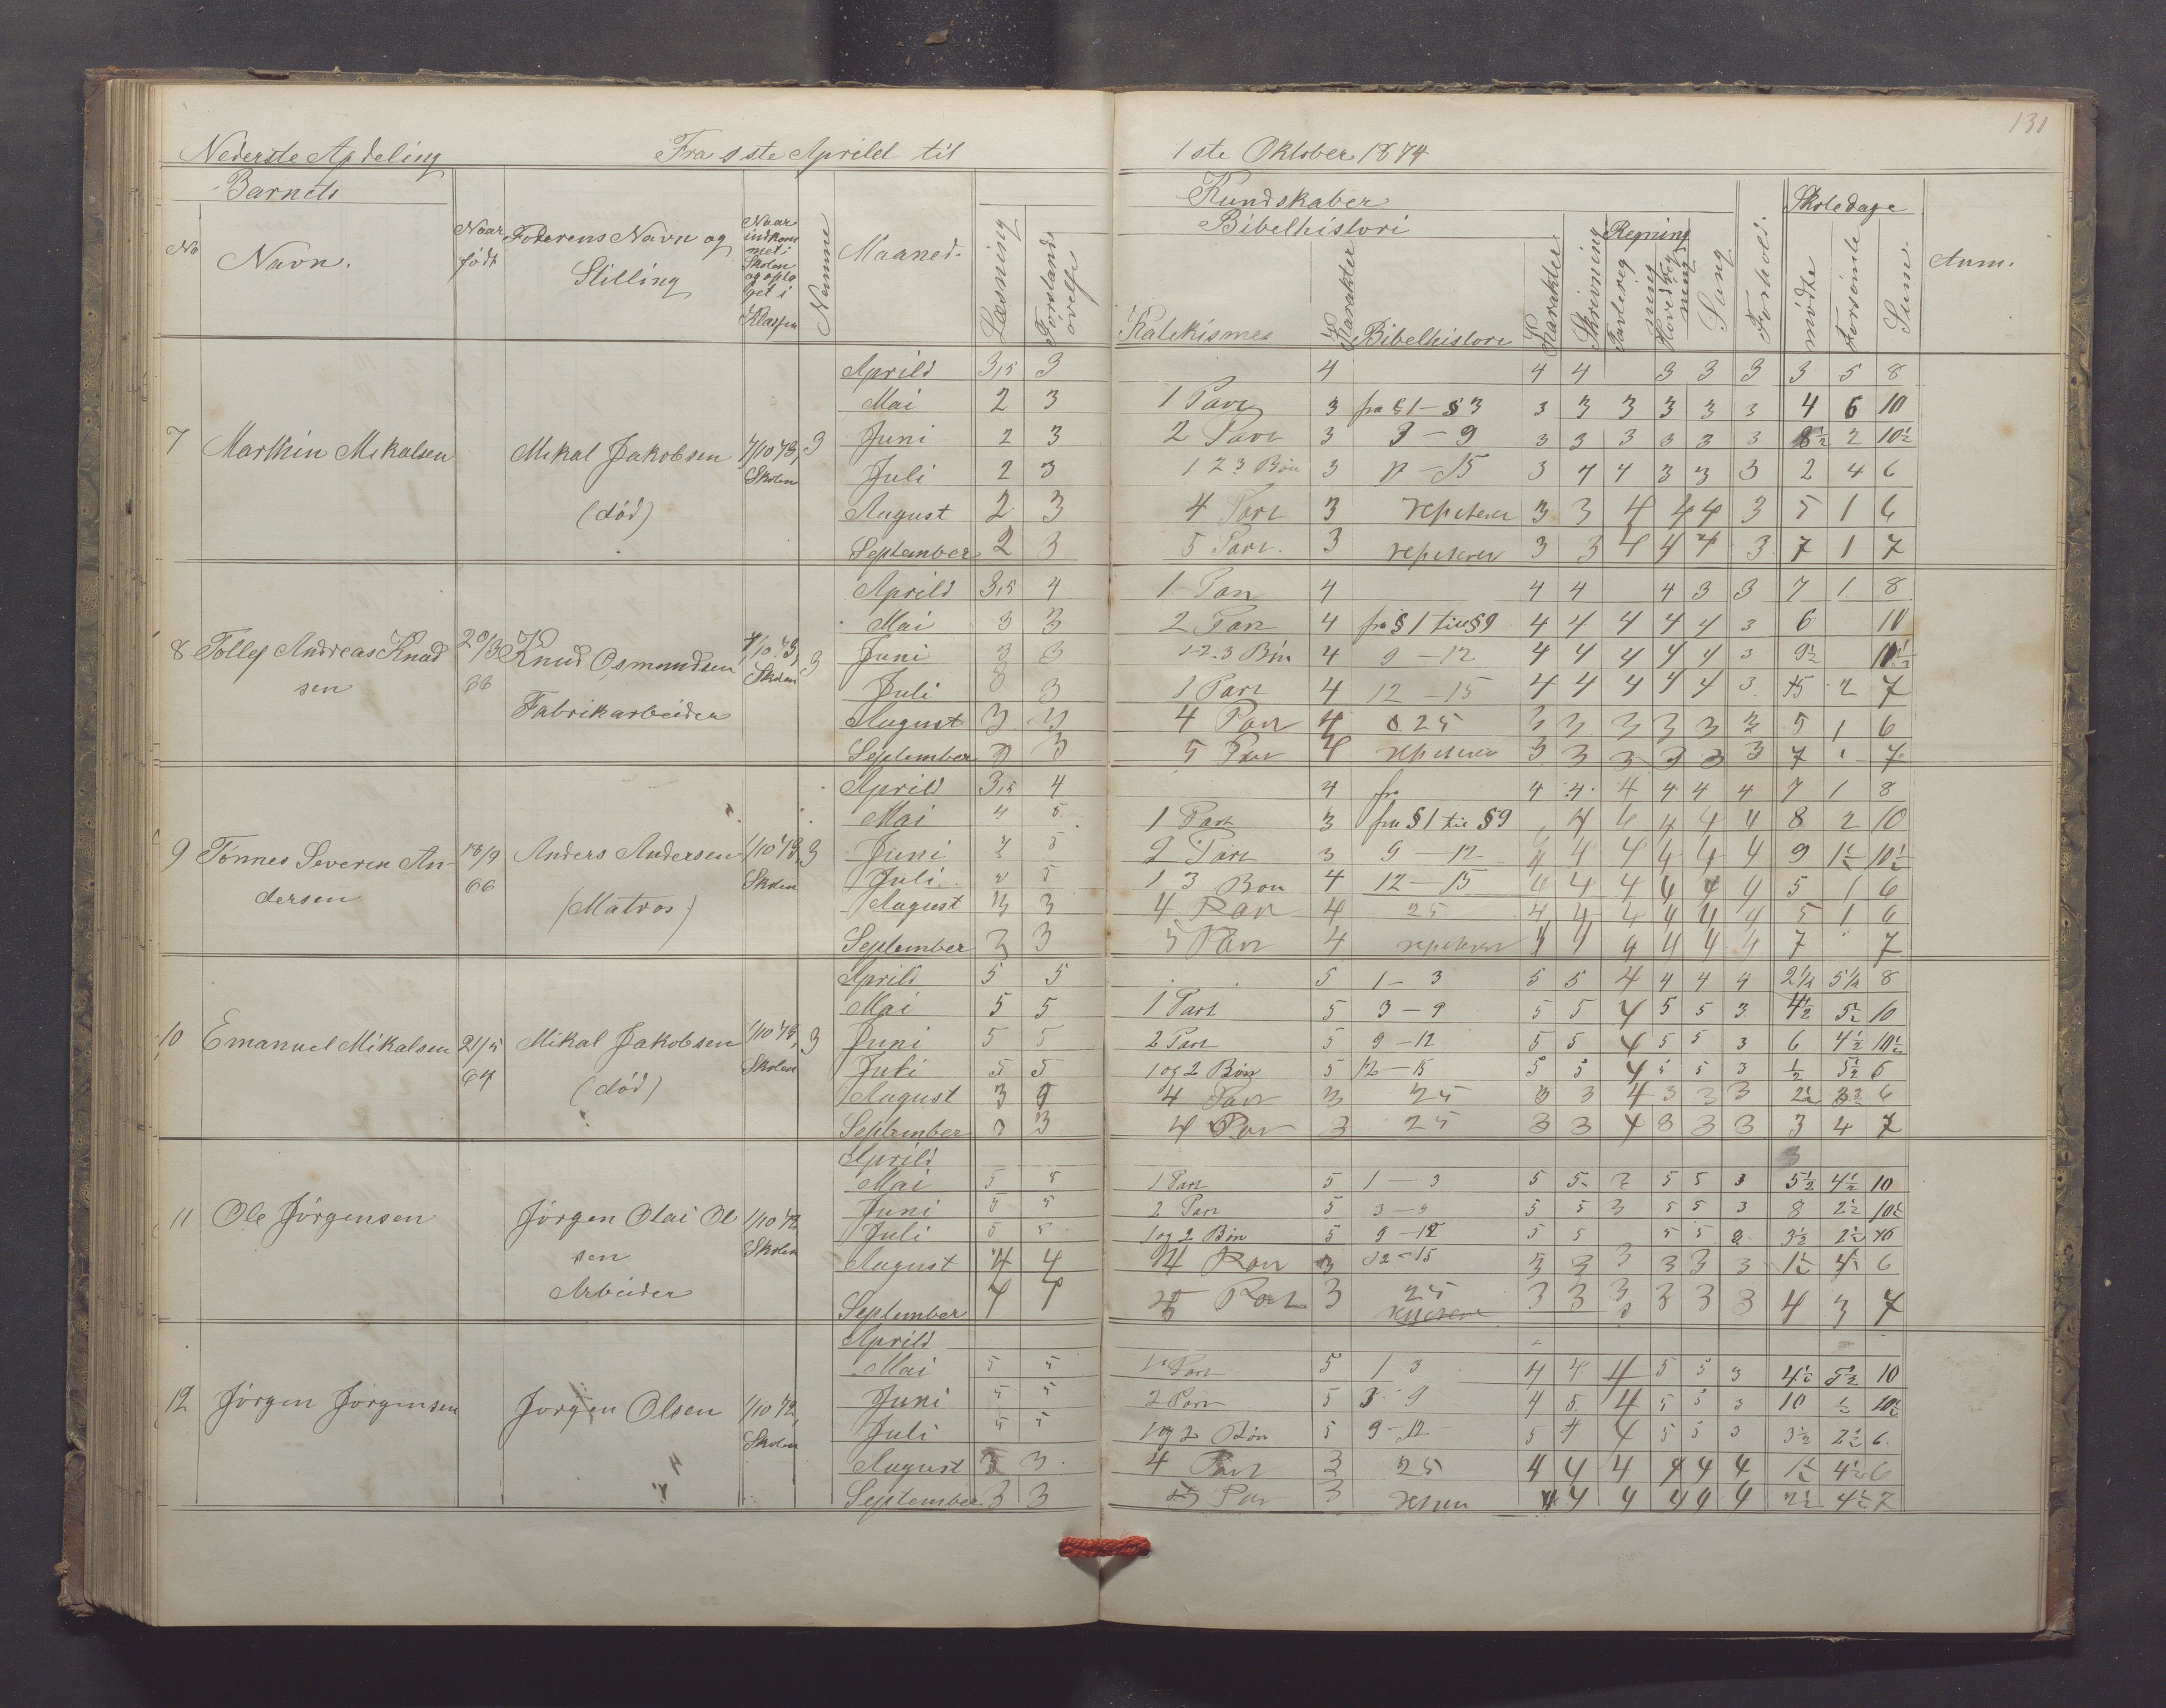 131
Nederste Afdeling Fra 1ste Aprild til 1ste Oktober 1874
Barnets Kundskaber Skoledage
No Navn. Naar født Faderens Navn og Stilling Naar indkommet i Skolen og optaget i Klassen Nemme Maaned. Læsning Forstandsøvelse Bibelhistori Katekismes Karakter Bibelhistori Karakter Skrivning Regning Tavleregning Hovedregning Sang Forhold. mødte Forsømte Sum. Anm.
Aprild 3,5 3 4 4 4 3 3 3 3 5 8
Mai 2 3 1 Part 3 fra § 1 - § 3 3 3 3 3 3 3 4 6 10
7 Marthin Mikalsen Mikal Jakobsen 1/10 73, 3 Juni 2 3 2 Part 3 3 - 9 3 3 3 3 3 3 8½ 2 10½
Skolen Juli 2 3 1 2 3 Bøn 3 - 15 3 4 4 3 3 3 2 4 6
(død) August 2 3 4 Part 3 repeterer 3 3 4 4 4 3 5 1 6
September 2 3 5 Part. 3 repeterer 3 3 4 4 4 3 7 1 7
Aprild 3,5 4 1 Part 4 4 4 4 3 3 7 1 8
Mai 3 3 2 Part 4 fra § 1 til § 9 4 4 4 4 4 3 6 10
8 Tollef Andreas Knud 20/3 Knud Osmundsen 1/10 73, 3 Juni 3 3 1-2-3 Bøn 4 9 - 12 4 4 4 4 4 3 9½ 10½
sen 66 Skolen Juli 3 3 1 Part 4 12 - 15 4 4 4 4 4 3 5 2 7
Fabrikarbeider August 3 3 4 Part 4 25 3 3 3 3 3 3 5 1 6
September 3 3 5 Part 4 repeterer 3 3 3 3 3 3 7 7
Aprild 3,5 4 4 fra 4 4 4 4 4 4 7 1 8
Mai 4 5 1 Part 3 fra § 1 til § 9 4 4 4 4 4 8 2 10
9 Tønnes Severin An- 18/9 Anders Andersen 1/10 73, 3 Juni 5 2 Part 3 9 - 12 4 4 4 4 4 4 9 1½ 10½
dersen 66 Skolen Juli 5 1 3 Bøn 4 12 - 15 4 4 4 4 4 4 5 1 6
(Matros) August 3 3 4 Part 4 25 4 4 4 4 4 4 5 1 6
September 3 3 5 Part 4 repeterer 4 4 4 4 4 4 7 7
Aprild 5 5 5 1 - 3 5 5 4 4 4 4 2½ 5½ 8
Mai 5 5 1 Part 5 3 - 9 5 5 4 5 5 3 4½ 5½ 10
10 Emanuel Mikalsen 21/5 Mikal Jakobsen 1/10 73, 3 Juni 5 5 2 Part 5 9 - 12 5 5 4 5 5 3 6 4½ 10½
64 Skolen Juli 5 5 1 og 2 Bøn 5 12 - 15 5 5 4 5 5 3 ½ 5½ 6
(død) August 3 4 Part 3 25 3 3 4 3 3 3 2½ 3½ 6
September 3 3 4 Part 3 25 3 3 4 3 3 3 3 4 7
Aprild
Mai 5 5 1 Part 5 1 - 3 5 5 5 5 3 5½ 4½ 10
11 Ole Jørgensen Jørgen Olai Ol 1/10 72, Juni 5 5 2 Part 5 3 - 9 5 5 3 5 5 3 8 2½ 10½
sen Skolen Juli 5 5 1 og 2 Bøn 5 9 - 12 5 5 5 5 3 3½ 2½ 6
Arbeider August 4 4 4 Part 3 12 - 15 3 3 3 3 3 3 1½ 4½ 6
September 4 4 Part 3 25 3 3 3 3 3 3 4 3 7
Aprild
Mai 5 5 1 Part 5 1 3 4 4 4 5 5 3 4½ 5½ 10
12 Jørgen Jørgensen Jørgen Olsen 1/10 72, Juni 5 5 2 Part 5 3 9 4 5 4 5 5 3 10 ½ 10½
Skolen Juli 5 5 1 og 2 Bøn 5 9 - 12 5 4 4 5 5 3 3½ 2½ 6
August 3 3 4 Part 3 25 4 4 4 4 4 4 1½ 4½ 6
September 3 3 5 Part 3 4 4 4 4 4 4 2½ 4½ 7